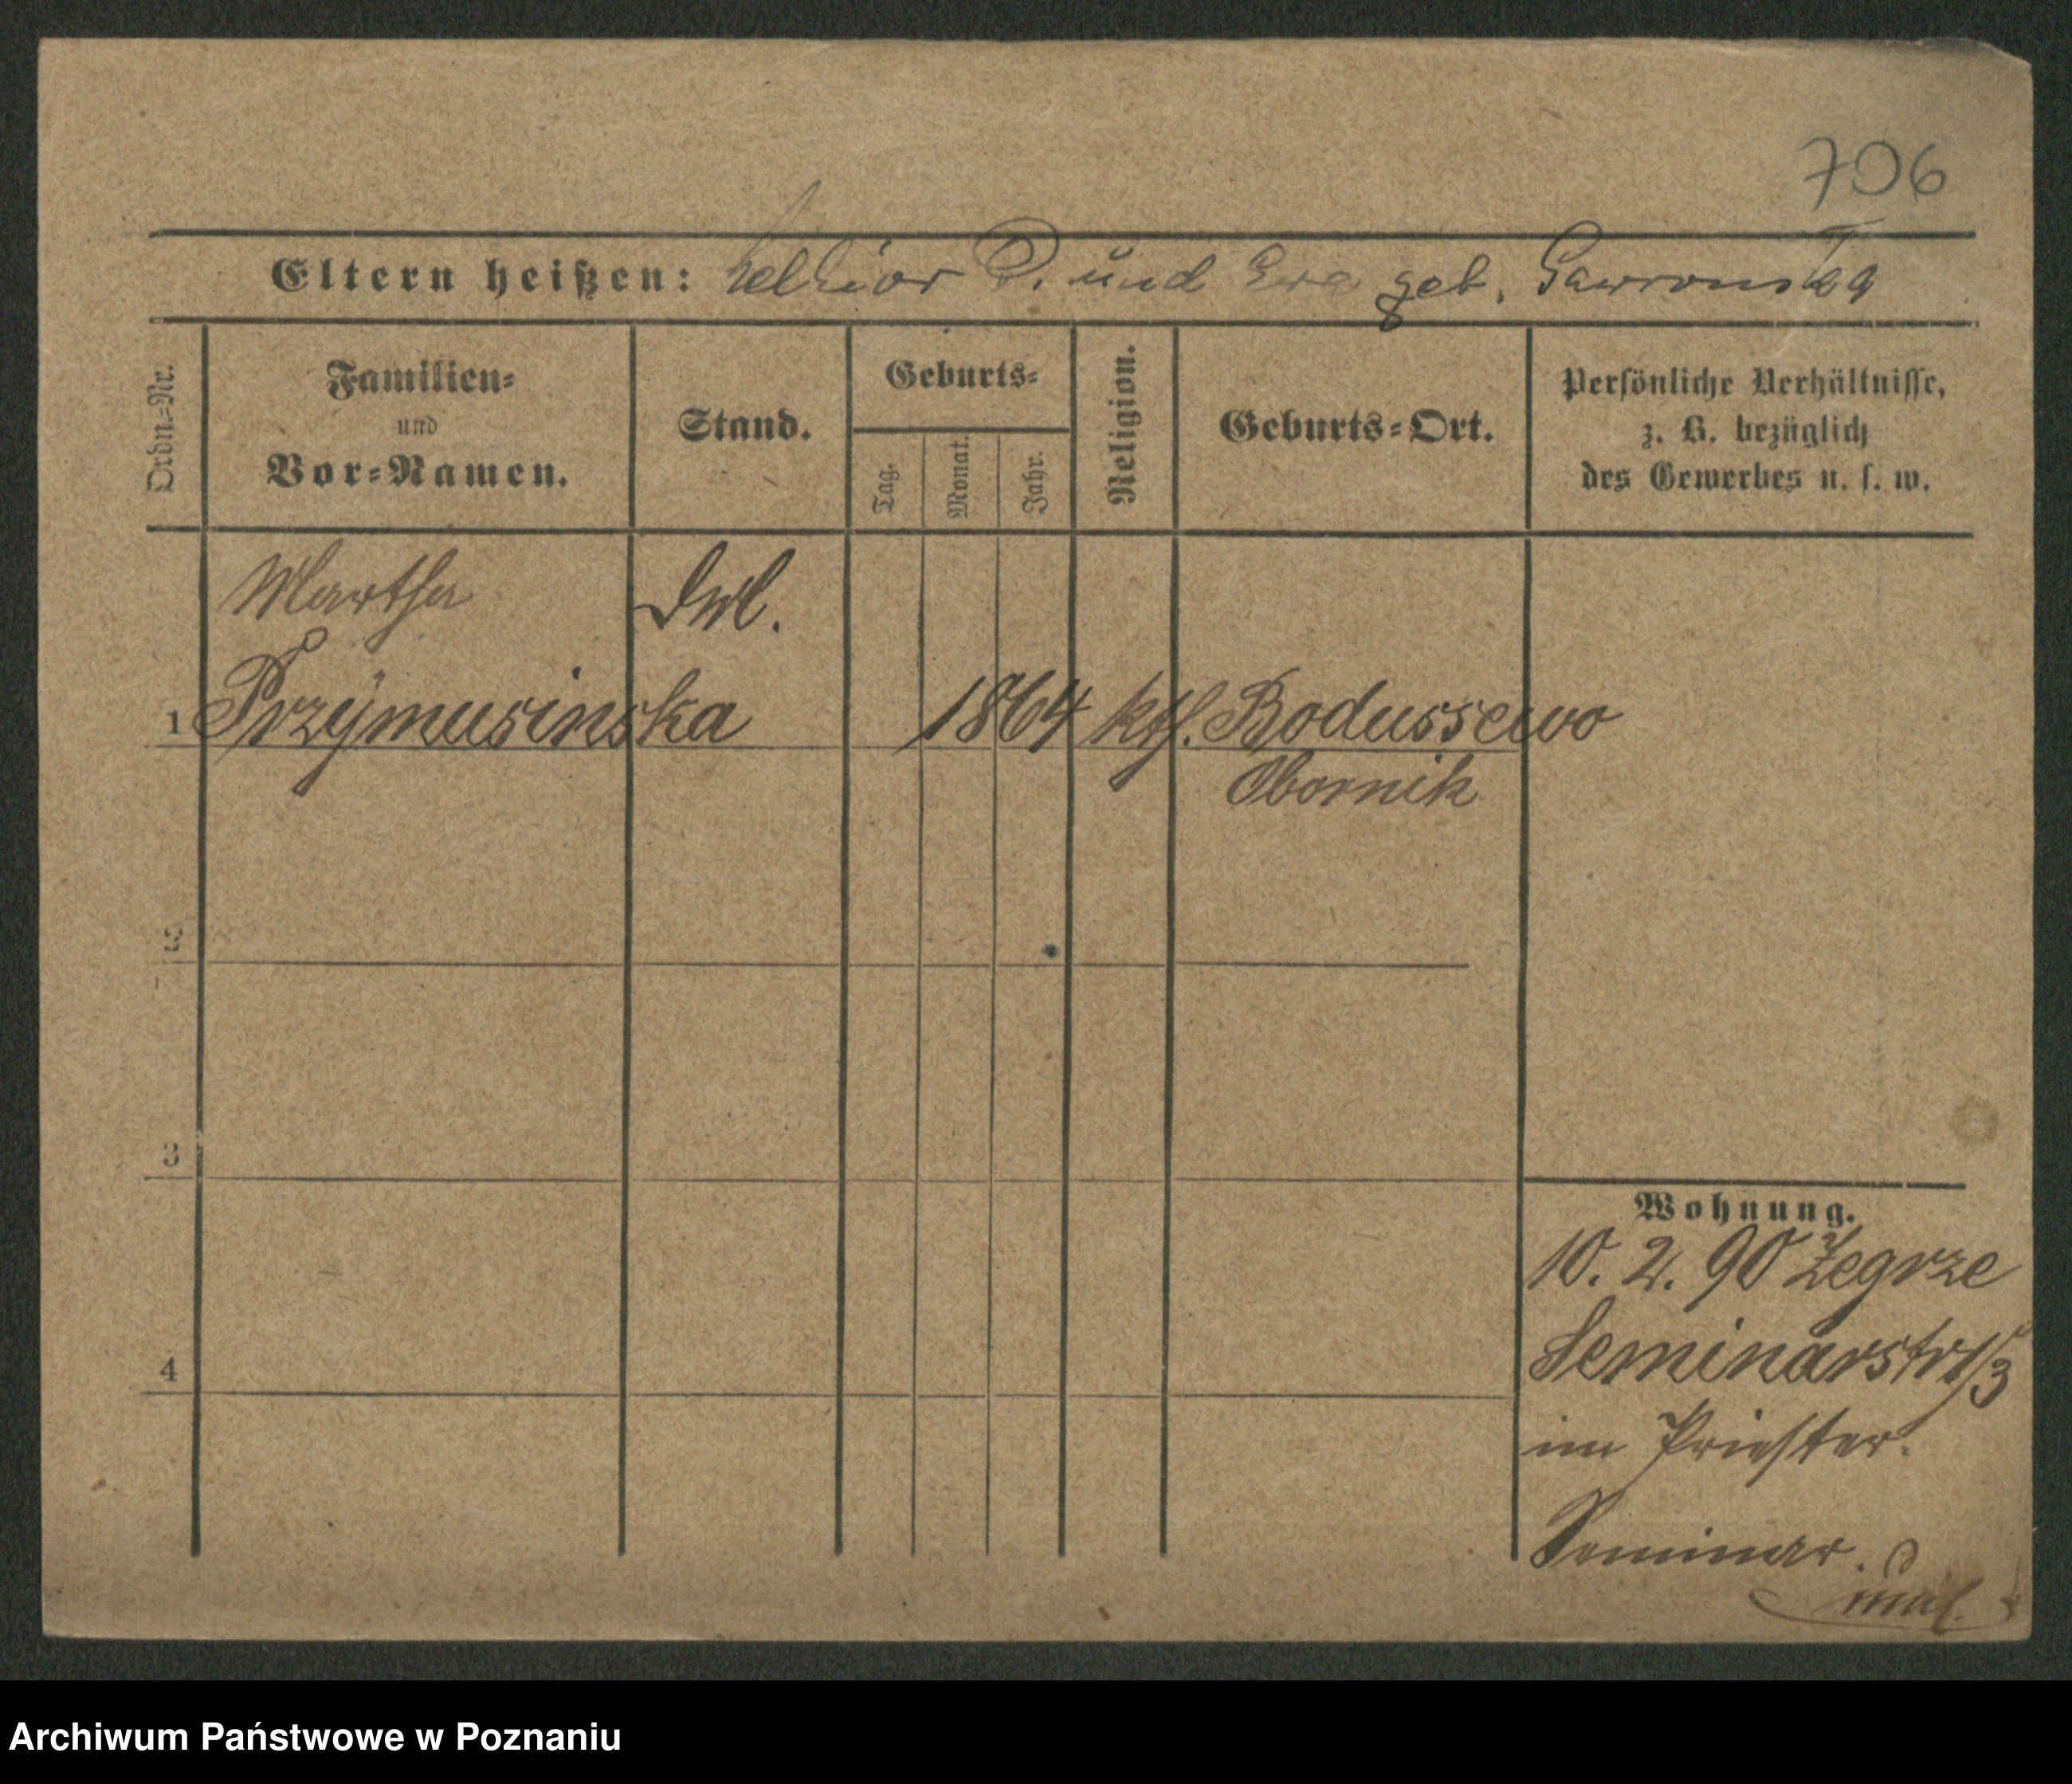 706
Eltern heißen: Melchior P. und Ewa geb. Gawronska
Ordn.=Nr.
Familien=
und
Vor=Namen.
Stand.
Geburts=
Tag.
Monat.
Jahr.
Religion.
Geburts=Ort.
Persönliche Verhältnisse,
z. B. bezüglich
des Gewerbes u. s. w.
Martha
1 Przymusinska
1864 kth. Bodussewo
Obornik
2
3
4
Wohnung.
10. 2. 90 Żegrze
Seminarstr 1/3
im Priester-
Seminar.
Archiwum Państwowe w Poznaniu